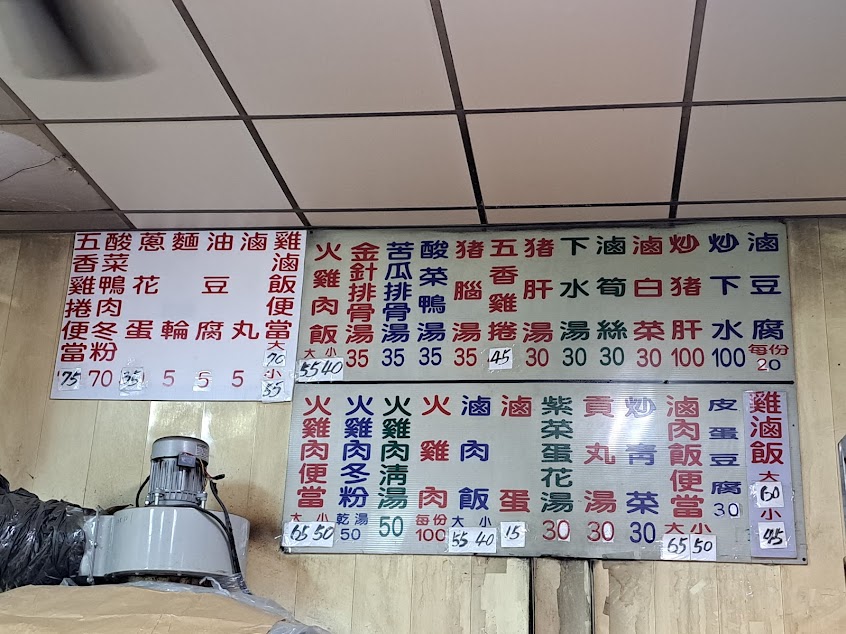 滷豆腐 每份 20
炒下水 100
炒豬肝 100
滷白菜 30
滷筍絲 30
下水湯 30
豬肝湯 30
五香雞捲 45
豬腦湯 35
酸菜鴨湯 35
苦瓜排骨湯 35
金針排骨湯 35
火雞肉飯 大 55 小 40
雞滷飯 大 60 小 45
皮蛋豆腐 30
滷肉飯便當 大 65 小 50
炒青菜 30
貢丸湯 30
紫菜蛋花湯 30
滷蛋 15
滷肉飯 大 55 小 40
火雞肉 每份 100
火雞肉清湯 50
火雞肉冬粉 乾 湯 50
火雞肉便當 大 65 小 50
雞滷飯便當 大 70 小
滷丸 5
油豆腐 5
麵輪 5
蔥花蛋 35
酸菜鴨肉冬粉 70
五香雞捲便當 75